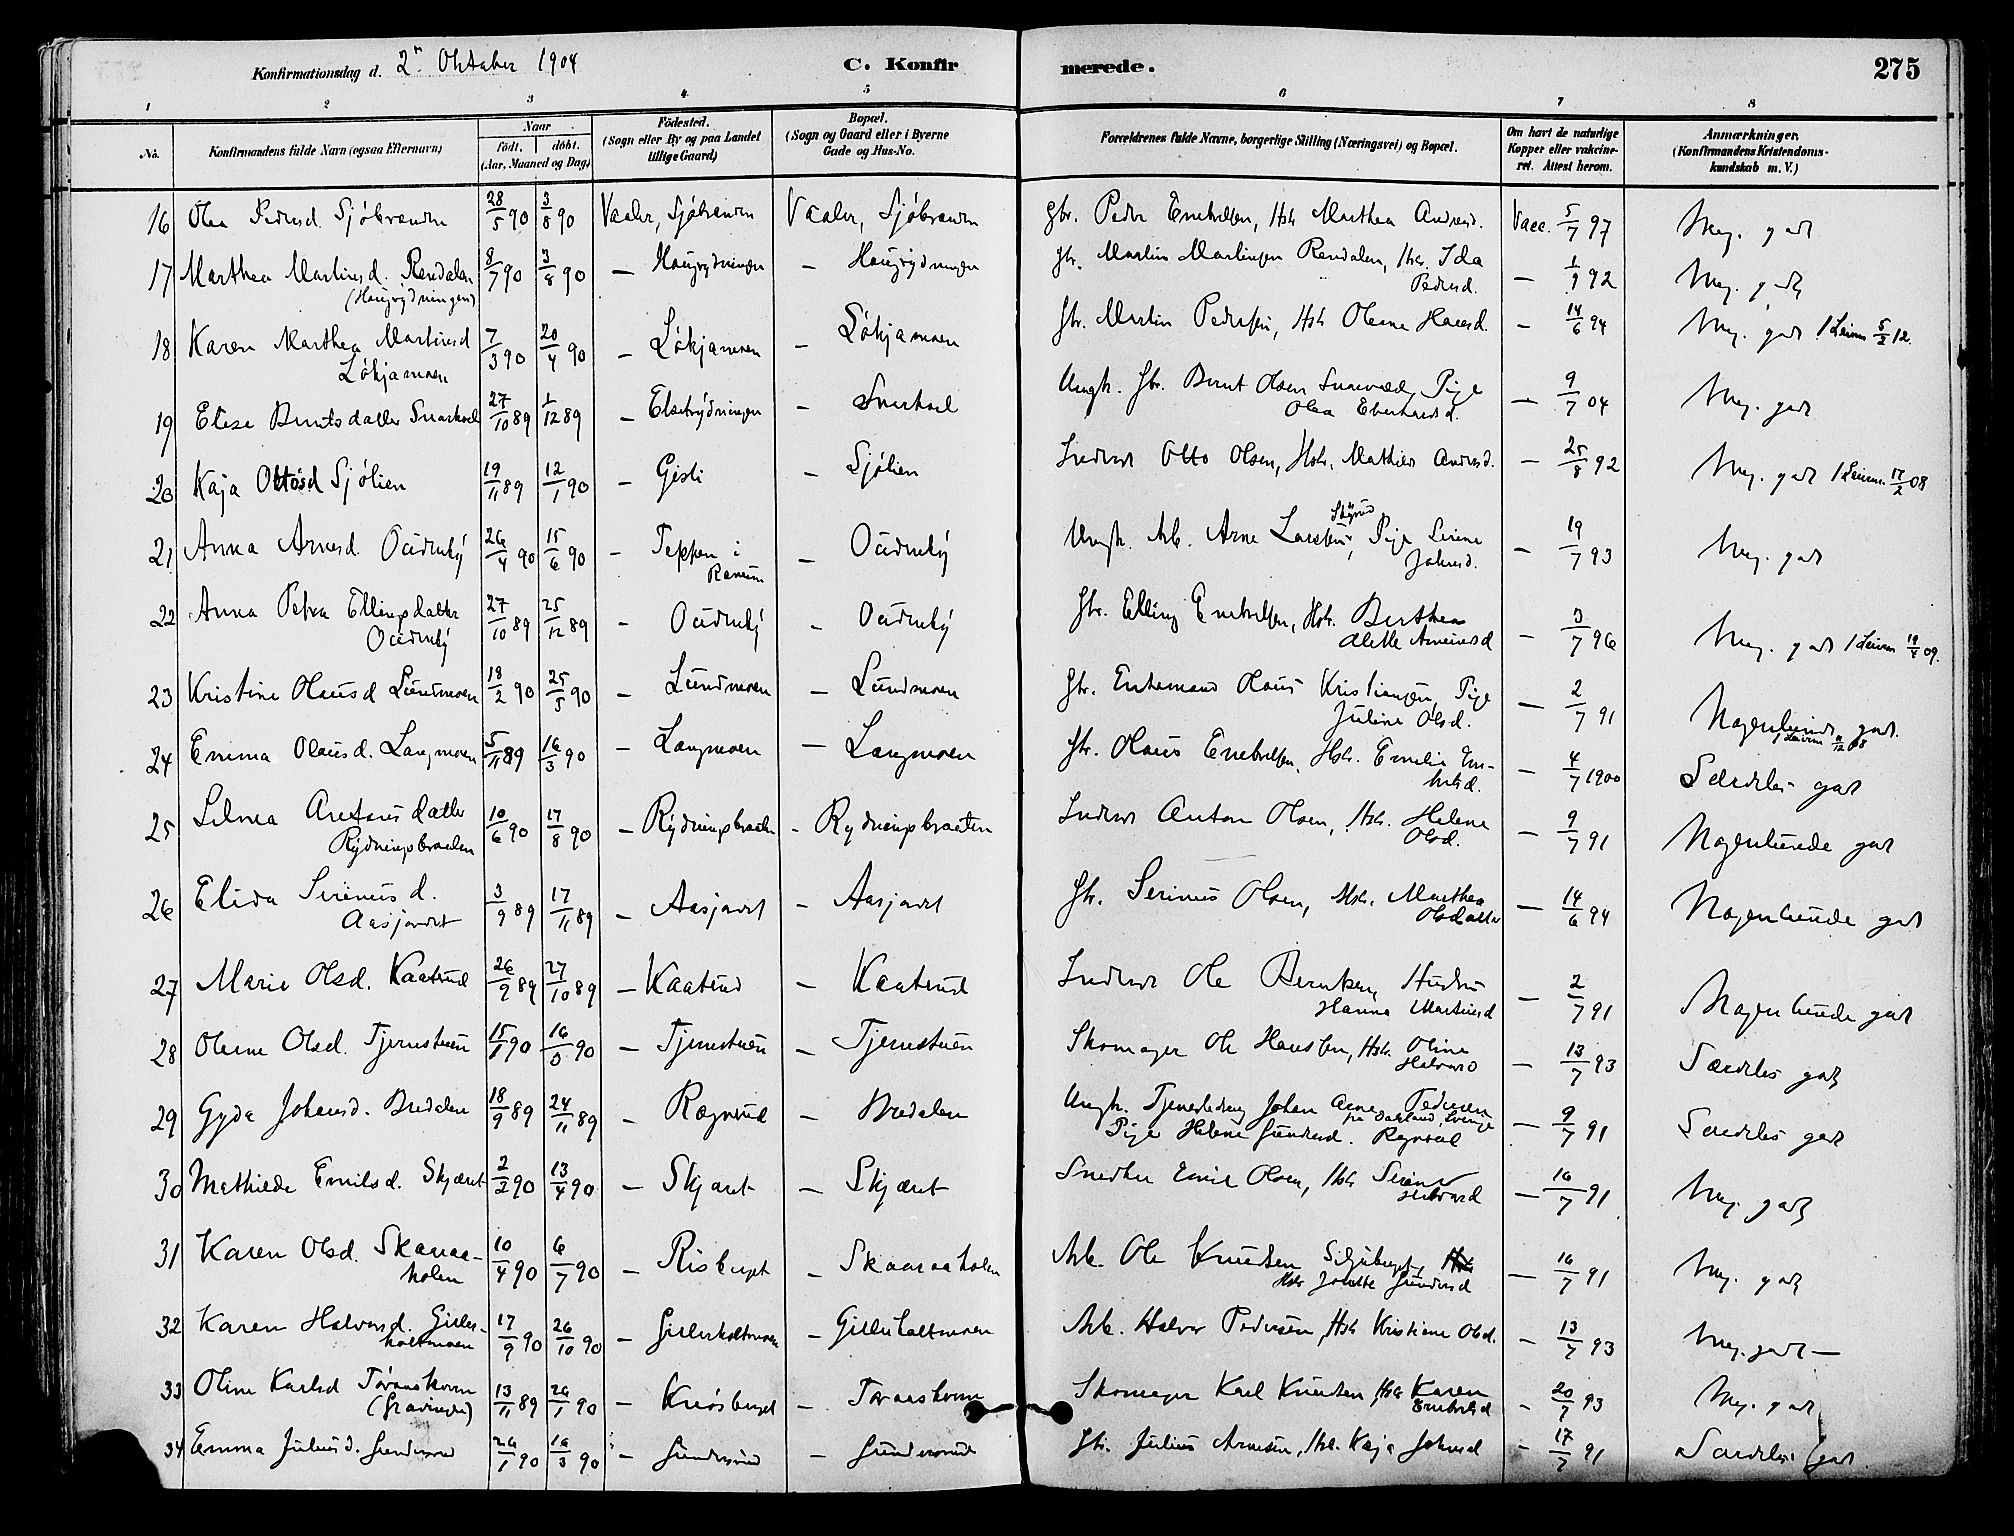 Konfirmationsdag d. 2n Oktober 1904 C. Konfirmerede. 275
1 2 3 4 5 6 7 8
No. Konfirmandens fulde Navn (ogsaa Efternavn) Naar født. døbt. (Aar, Maaned og Dag) Fødested. (Sogn eller By og paa Landet tillige Gaard) Bopæl. (Sogn og Gaard eller i Byerne Gade og Hus-No. Forældrenes fulde Navne, borgerlige Stilling (Næringsvei) og Bopæl. Om havt de naturlige Kopper eller vakcineret. Attest herom. Anmærkninger. (Konfirmandens Kristendomskundskab m. V.)
16 Olea Pedersd. Sjöbranden 28/5 90 3/8 90 Vaaler, Sjöbranden Vaaler, Sjöbranden Gbr. Peder Enebretsen, Hstr Marthea Andersd. Vacc. 5/7 97 Meg. godt
17 Marthea Martinsd. Rendalen (Haugrydningen) 8/7 90 3/8 90 — Haugrydningen — Haugrydningen Gbr. Martin Martinsen Rendalen, Hstr Ida Pedersd. — 1/9 92 Meg. godt
18 Karen Marthea Martinsd Løkjamoen 7/3 90 20/4 90 — Løkjamoen — Løkjamoen Gbr. Martin Pedersen, Hstr Oleane Hansd. — 14/6 94 Meg. godt 5/2 12.
19 Elise Berntsdatter Snarkvel 27/10 89 1/12 89 — Elsetrydningen — Ungk. Gbr. Bernt Olsen Pige Olea Eberhardsd. — 9/7 04 Meg. godt
20 Kaja Ottosd Sjølien 19/11 89 12/1 90 — Gisti — Sjølien Inderst Otto Olsen, Hstr. Mathea Andersd. — 25/8 92 Meg. godt 17/2 08
21 Anna Arnesd. Oudenby 26/4 90 15/6 90 — Teppen i — Oudenby Ungk. Arb. Arne Larsen, Pige Serine Johnsd. — 19/7 93 Meg. godt
22 Anna Petra Ellingsdatter Oudenby 27/10 89 25/12 89 — Oudenby — Oudenby Gbr. Elling Enebretsen, Hstr. Berthea Alette Arnesd — 3/7 96 Meg. godt 09.
23 Kristine Olausd Lundmoen 18/2 90 25/5 90 — Lundmoen — Lundmoen Gbr. Enkemand Olaus Kristiansen, Pige Juline Olsd. — 2/7 91 Nogenlunde godt.
24 Emma Olausd. Langmoen 5/11 89 16/3 90 — Langmoen — Langmoen Gbr. Olaus Enebretsen, Hstr. Emelie — 4/7 1900 Særdeles godt
25 Selma Antonsdatter Rydningsbraaten 10/6 90 17/8 90 — Rydningsbraaten — Rydningsbraaten Inderst Anton Olsen, Hstr. Helene Olsd. — 9/7 91 Nogenlunde godt
26 Elida Serinusd. Aasjordet 3/9 89 17/11 89 — Aasjordet — Aasjordet Gbr. Serinus Olsen, Hstr. Marthea Olsdatter — 14/6 94 Nogenlunde godt
27 Marie Olsd. Kaaterud 26/9 89 27/10 89 — Kaaterud — Kaaterud Inderst Ole Berntsen, Hustru Hanna Martinsd — 2/7 91 Nogenlunde godt
28 Oleane Olsd. Tjernstuen 15/1 90 16/ 90 — Tjernstuen — Tjernstuen Skomager Ole Hansen, Hstr. Oline Halvorsd — 13/7 93 Særdeles godt
29 Gyda Johansd. Bredalen 18/9 89 24/11 89 — Ragnrud — Bredalen Ungk. Tjenestedreng Johan Arne Pedersen fra Dalsland, Sverige Pige Helene Gundersd. — 9/7 91 Særdeles godt
30 Mathilde Emilsd. Skjæret 2/2 90 13/4 90 — Skjæret — Skjæret Snedker Emil Olsen, Hstr Serine Halvorsd — 16/7 91 Meg. godt
31 Karen Olsd. Skaaraaholen 10/4 90 6/7 90 — Risberget — Skaaraaholen Arb. Ole Knudsen Siljuberget, Hstr Jonette Gundersd — 16/7 91 Meg. godt
32 Karen Halvorsd. Gillerholtmoen 17/9 90 26/10 90 — Gillerholtmoen — Gillerholtmoen Arb. Halvor Pedersen, Hstr Kristiane Olsd. — 13/7 93 Meg. godt —
33 Oline Karlsd Toraaskorn 13/11 89 26/1 90 — Knøsberget — Toraaskorn Skomager Karl Knudsen, Hstr Karen Enebretsd — 20/7 93 Meg. godt
34 Emma Juliusd. Gundersrud 26/1 90 16/3 90 — Gundersrud — Gundersrud Gbr. Julius Arnesen, Hstr. Kaja Johnsd — 17/7 91 Særdeles godt.